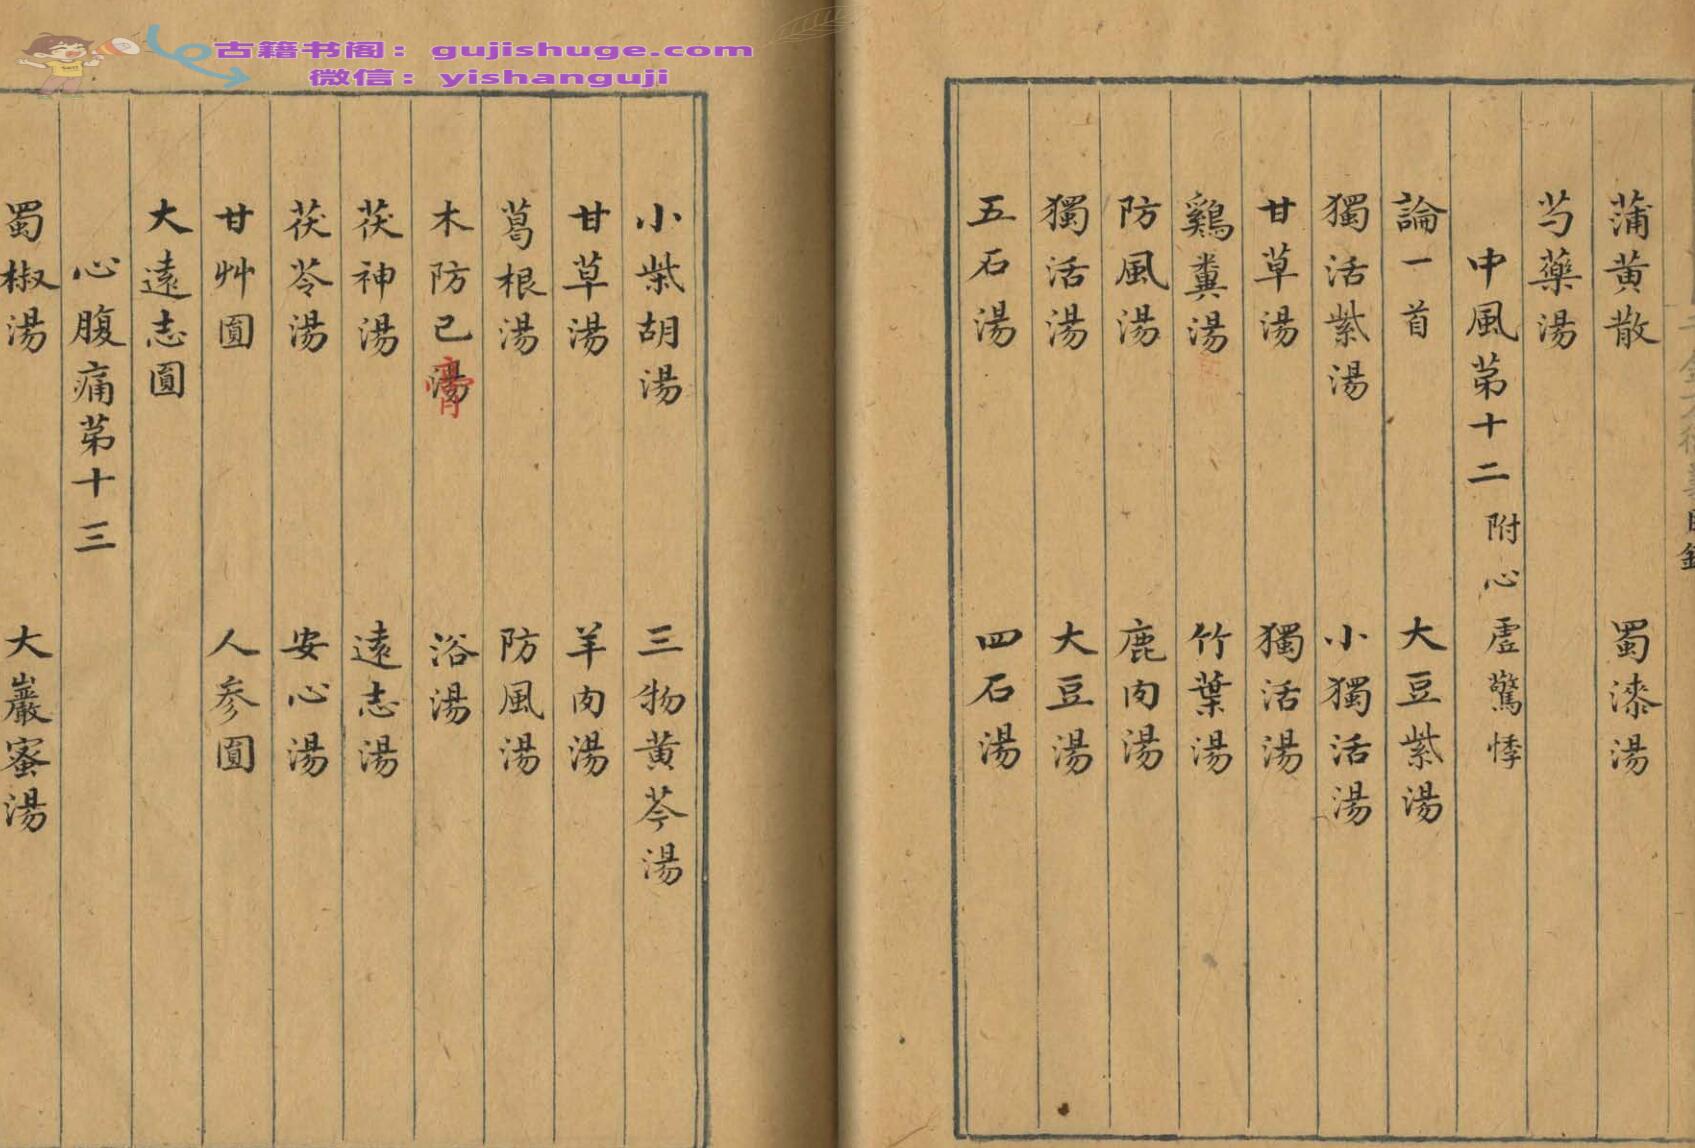 古籍书阁：gujishuge.com
微信：yishanguji
目錄
蒲黄散 蜀漆湯
芍藥湯
中風苐十二 附心虛驚悸
論一首 大豆紫湯
獨活紫湯 小獨活湯
甘草湯 獨活湯
鷄糞湯 竹葉湯
防風湯 鹿肉湯
獨活湯 大豆湯
五石湯 四石湯
小柴胡湯 三物黄芩湯
甘草湯 羊肉湯
葛根湯 防風湯
木防己膏 浴湯
茯神湯 遠志湯
茯苓湯 安心湯
甘艸圓 人參圓
大遠志圓
心腹痛苐十三
蜀椒湯 大巖蜜湯